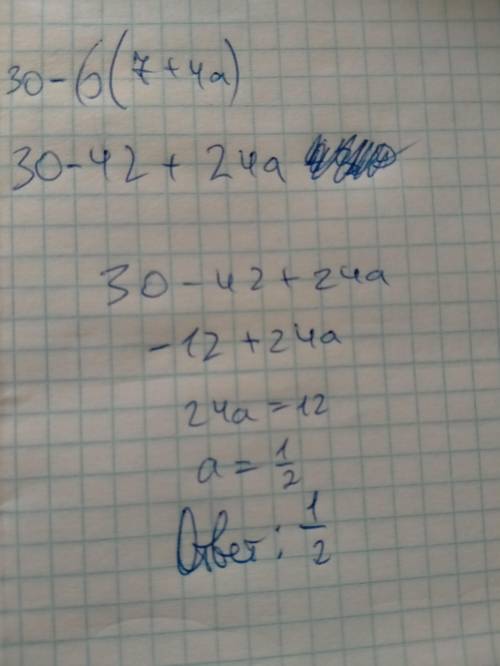 30-6(7+4a)
30-42+24a
30-42+24a
-12+24a
24a=12
a=1/2
Ответ: 1/2